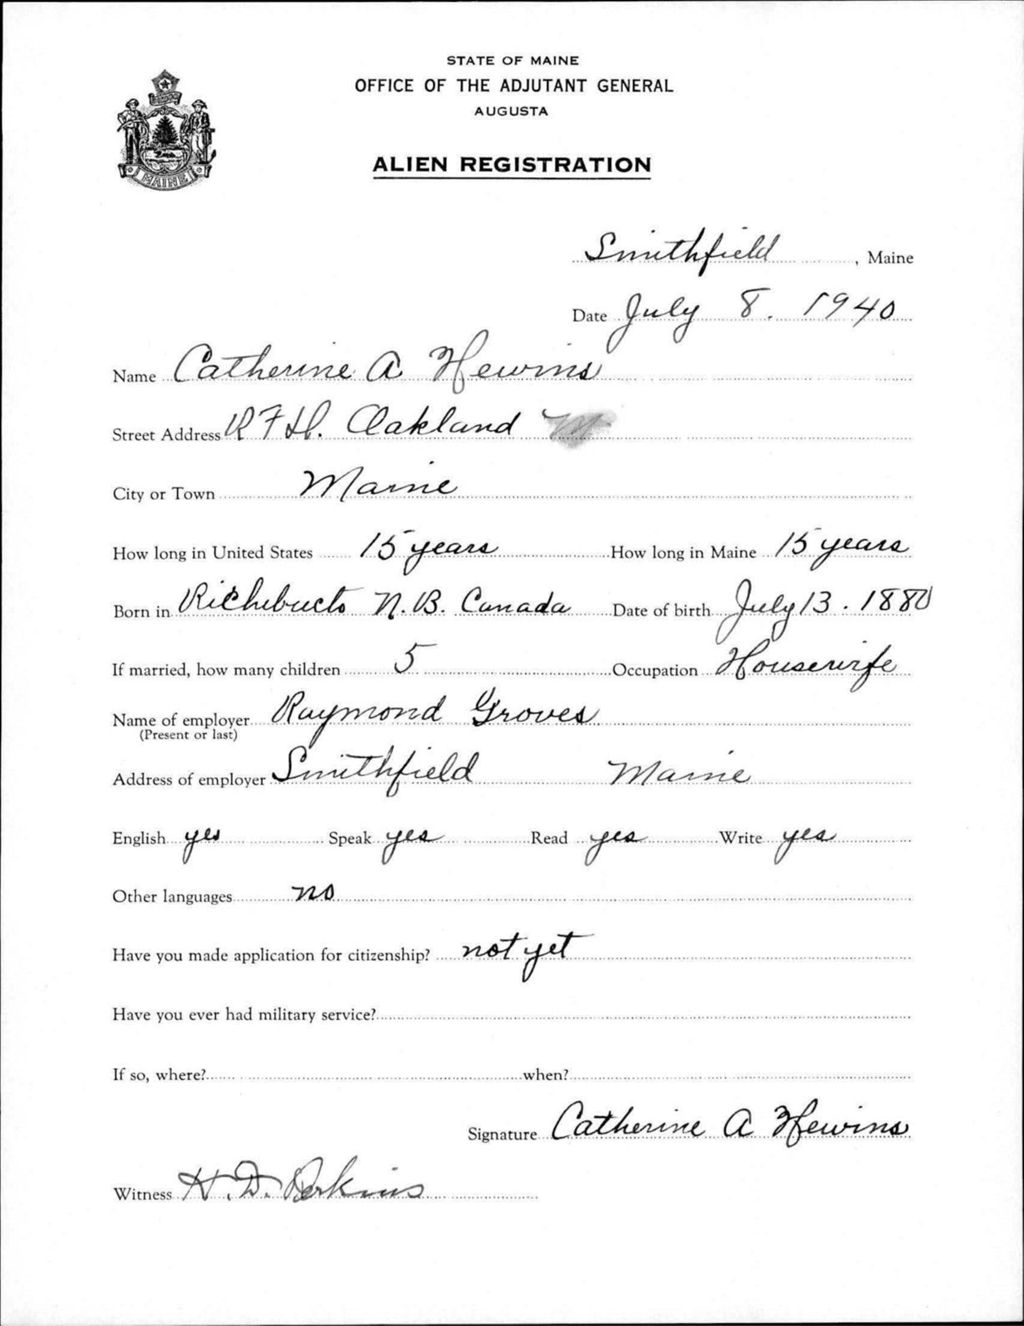 STATE OF MAINE
OFFICE OF THE ADJUTANT GENERAL
AUGUSTA
ALIEN REGISTRATION
MAINE
Smithfield, Maine
Date July 8. 1940
Name Catherine A Hewins
Street Address R F D. Oakland M
City or Town Maine
How long in United States 15 years How long in Maine 15 years
Born in Richibucto N.B. Canada Date of birth July 13. 1880
If married, how many children 5 Occupation Housewife
Name of employer Raymond Groves
(Present or last)
Address of employer Smithfield Maine
English yes Speak yes Read yes Write yes
Other languages no
Have you made application for citizenship? not yet
Have you ever had military service?
If so, where? when?
Signature Catherine A Hewins
Witness H. D. Perkins